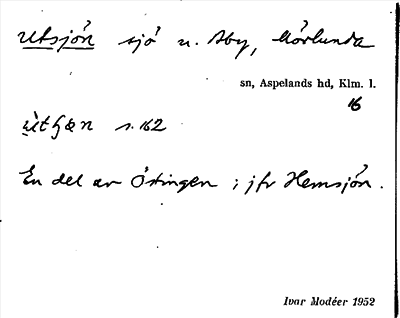 Utsjön sjö n. Åby, Mörlunda
sn, Aspelands hd, Klm. l.
16
s. 162
En del av Östingen ; jfr Hemsjön.
Ivar Modéer 1952